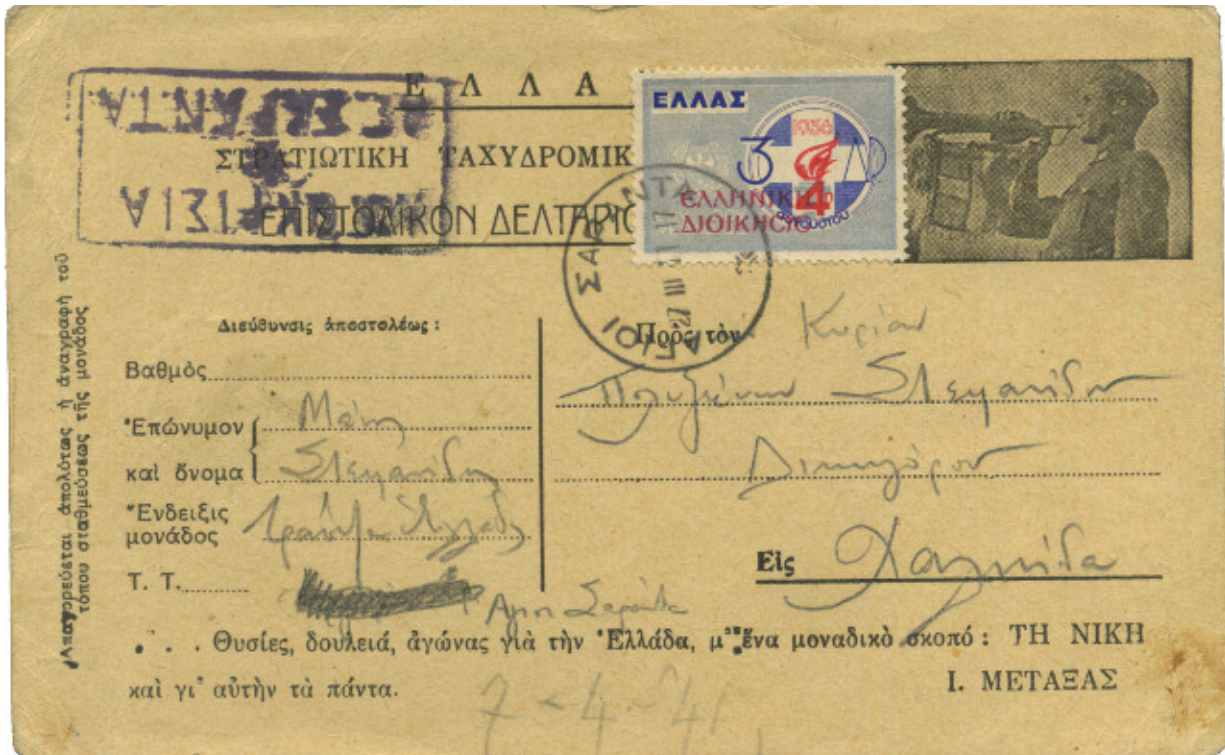 ΕΛΛΑ
ΣΤΡΑΤΙΩΤΙΚΗ ΤΑΧΥΔΡΟΜΙΚ
ΕΠΙΣΤΟΛΙΚΟΝ ΔΕΛΤΑΡΙΟ
ΕΛΛΑΣ
1936
3
4
αὐγούστου
ΕΛΛΗΝΙΚΗ
ΔΙΟΙΚΗCΙC
ΑΓΙΟΙ ΣΑΡΑΝΤΑ
Ἀπαγορεύεται ἀπολύτως ἡ ἀναγραφή τοῦ
τόπου σταθμεύσεως τῆς μονάδος
Διεύθυνσις ἀποστολέως :
Βαθμὸς
Ἐπώνυμον Μάνη
καὶ ὄνομα Στεφανίδη
Ἔνδειξις
μονάδος
Τ. Τ.
Ἅγιοι Σαράντα
Πρὸς τὸν Κυρίαν
Στεφανίδου
Δικηγόρου
Εἰς Χαλκίδα
. . . Θυσίες, δουλειά, ἀγώνας γιὰ τὴν Ἑλλάδα, μ' ἕνα μοναδικὸ σκοπό : ΤΗ ΝΙΚΗ
καὶ γι' αὐτὴν τὰ πάντα.
Ι. ΜΕΤΑΞΑΣ
7-4-41